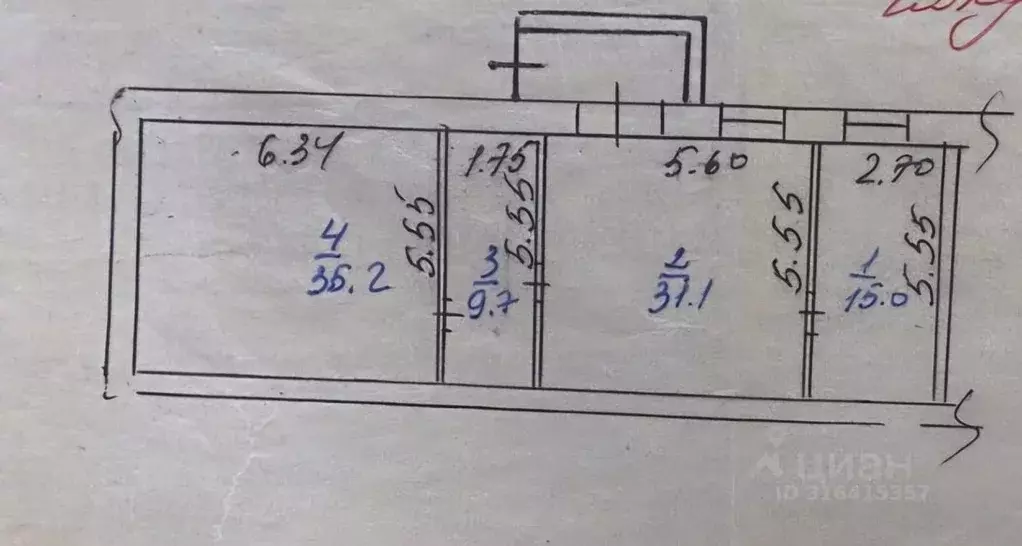 6.34
5.55
4
35.2
1.75
5.55
3
9.7
5.60
5.55
2
31.1
2.70
5.55
1
15.0
циан
ID 316415357